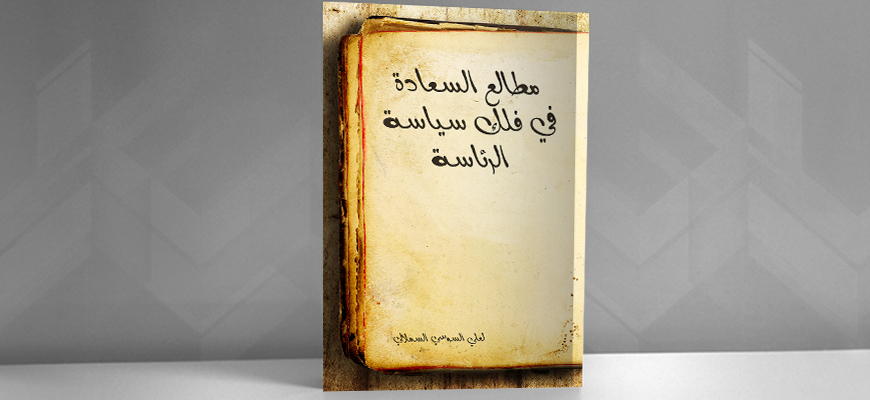 مطالع السعادة
في فلك سياسة
الرئاسة
لعلي السوسي السملالي